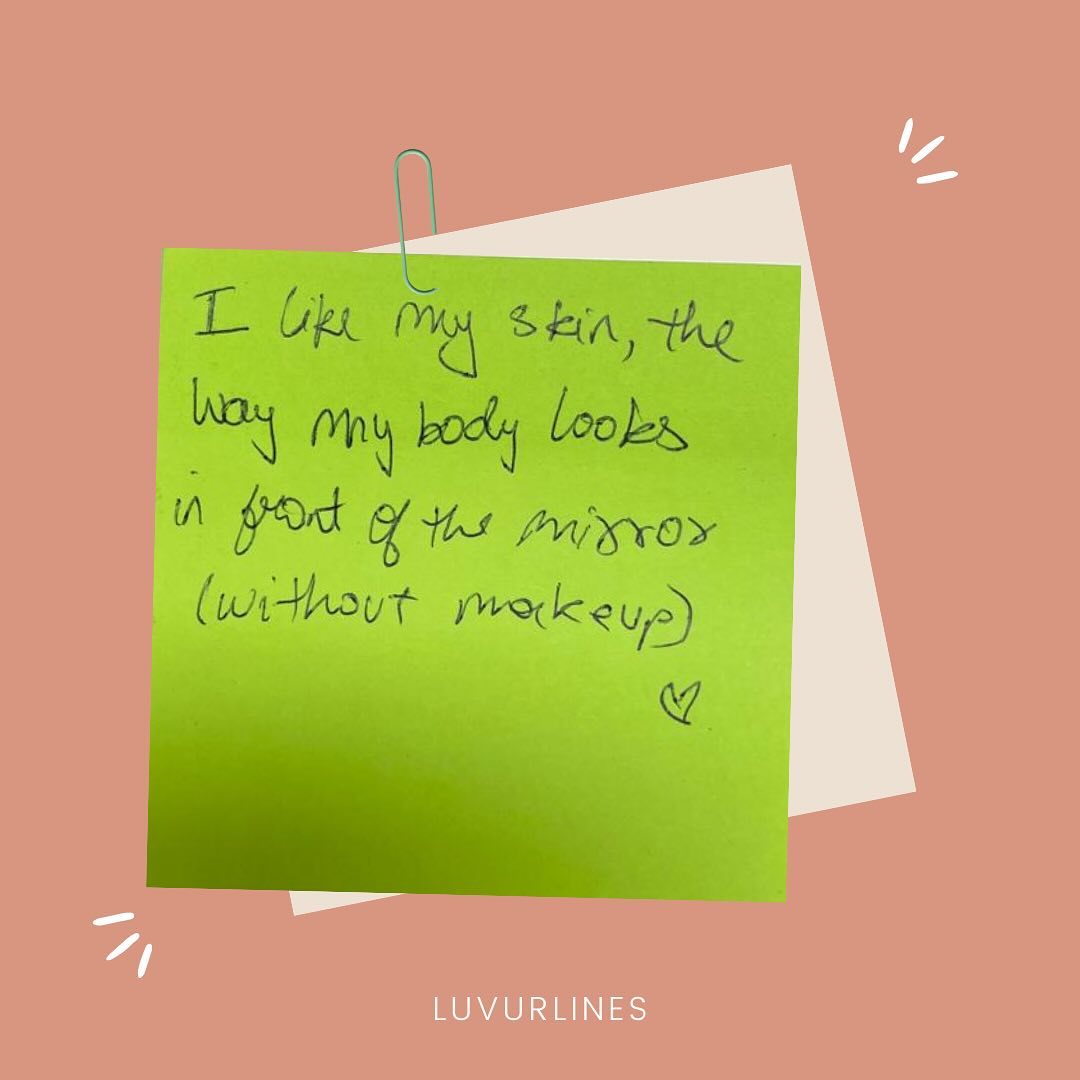 I like my skin, the
way my body looks
in front of the mirror
(without makeup)
♡
LUVURLINES